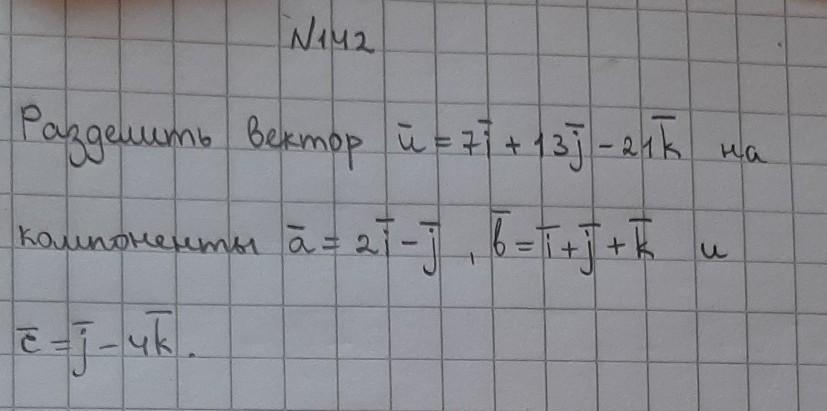 N142
Разделить вектор ū = 7i̅ + 13j̅ - 21k̅ на
компоненты ā = 2i̅ - j̅, b̅ = i̅ + j̅ + k̅ и
c̅ = j̅ - 4k̅.